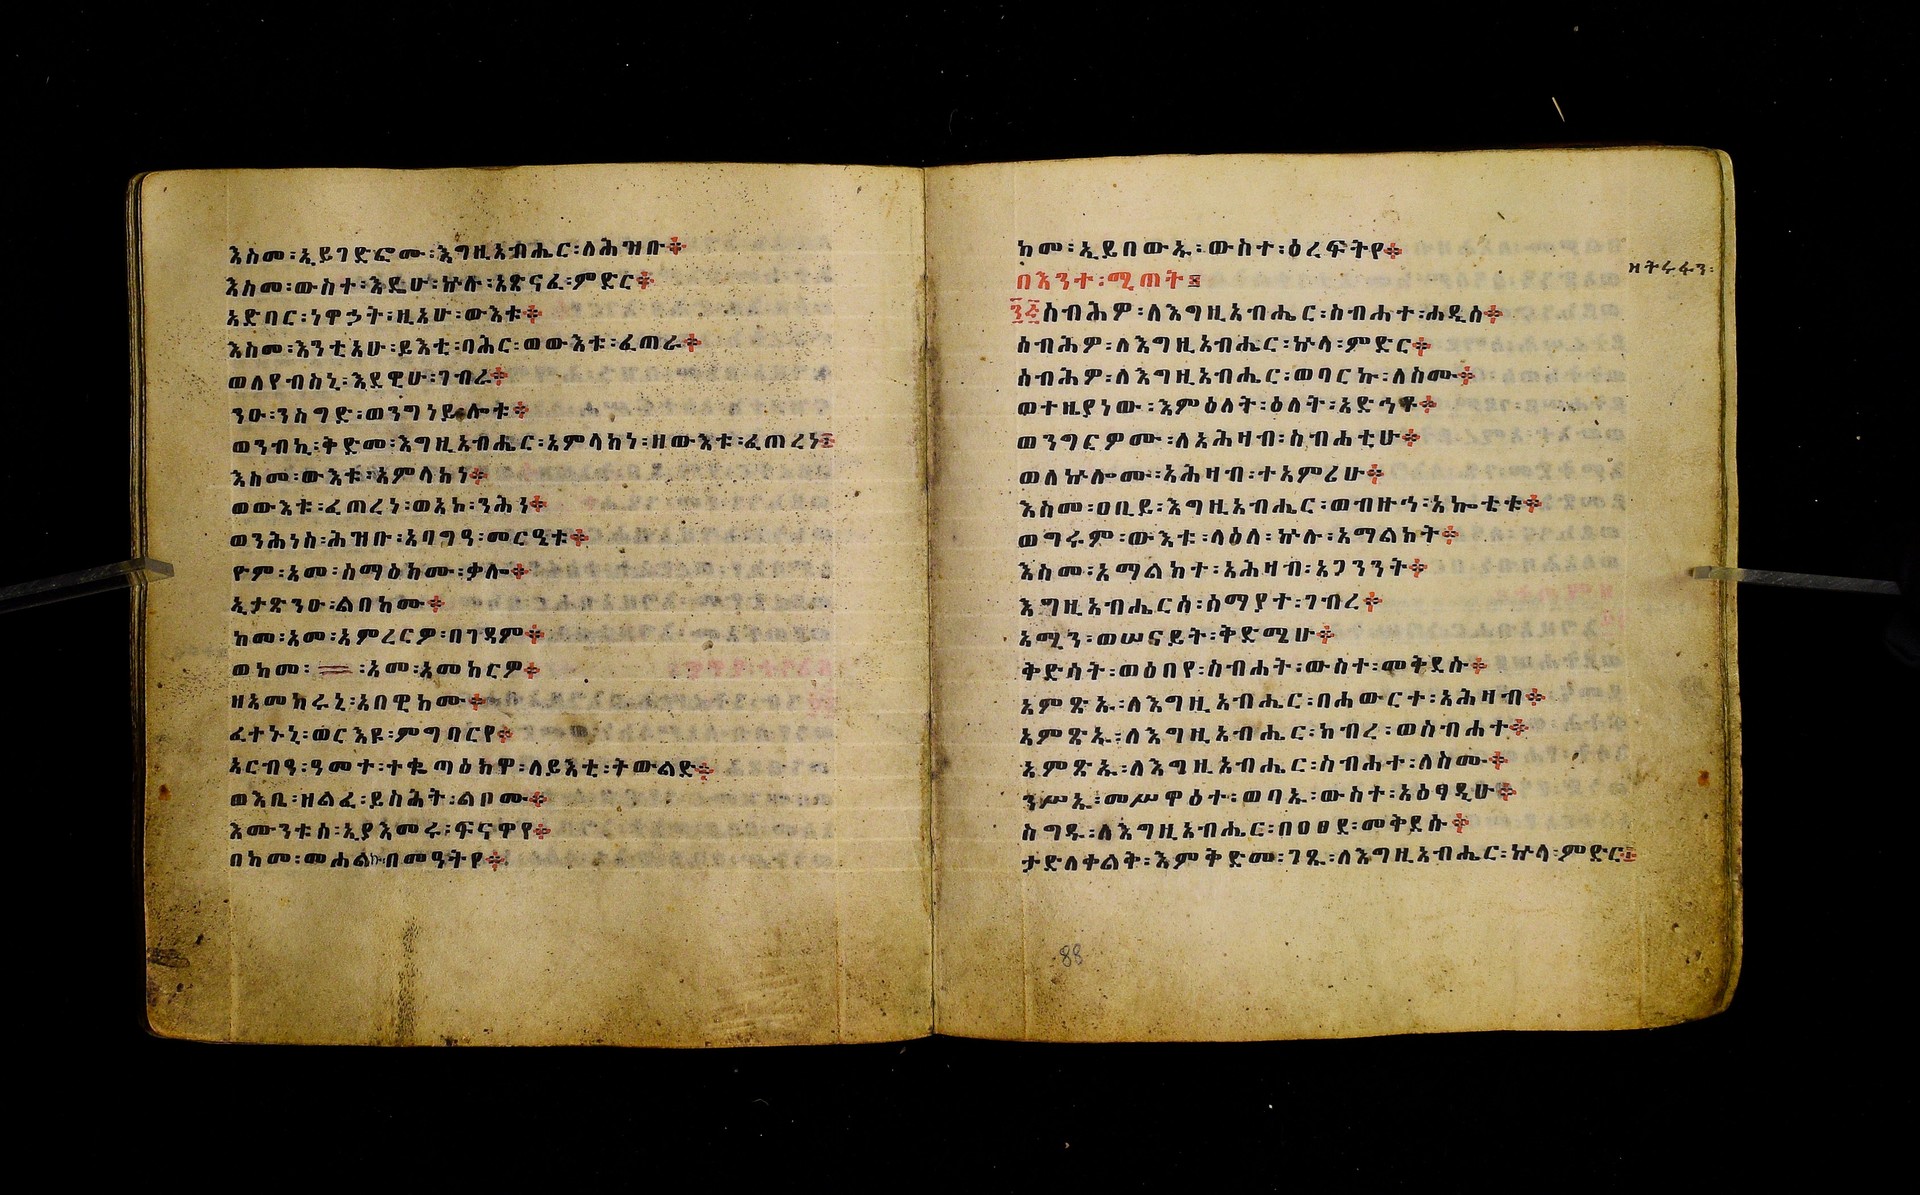 እስመ፡ኢይገድፎሙ፡እግዚአብሔር፡ለሕዝቡ።
እስመ፡ውስተ፡እዴሁ፡ኵሉ፡አጽናፈ፡ምድር።
አድባር፡ነዋኃት፡ዚአሁ፡ውእቱ።
እስመ፡እንቲአሁ፡ይእቲ፡ባሕር፡ወውእቱ፡ፈጠራ።
ወለየብስኒ፡እደዊሁ፡ገብራ።
ንዑ፡ንስግድ፡ወንግነይ፡ሎቱ።
ወንብኪ፡ቅድመ፡እግዚአብሔር፡አምላክነ፡ዘውእቱ፡ፈጠረነ፤
እስመ፡ውእቱ፡አምላክነ።
ወውእቱ፡ፈጠረነ፡ወአኮ፡ንሕነ።
ወንሕነስ፡ሕዝቡ፡አባግዓ፡መርዔቱ።
ዮም፡እመ፡ሰማዕክሙ፡ቃሎ።
ኢታጽንዑ፡ልበክሙ።
ከመ፡አመ፡አምረርዎ፡በገዳም።
ወከመ፡አመ፡አመከርዎ።
ዘአመክሩኒ፡አበዊክሙ።
ፈተኑኒ፡ወርእዩ፡ምግባርየ።
አርብዓ፡ዓመተ፡ተቈጣዕክዋ፡ለይእቲ፡ትውልድ።
ወእቤ፡ዘልፈ፡ይስሕት፡ልቦሙ።
እሙንቱሰ፡ኢያእመሩ፡ፍናዋየ።
በከመ፡መሐልኩ፡በመዓትየ።
ከመ፡ኢይበውኡ፡ውስተ፡ዕረፍትየ።
በእንተ፡ሚጠት፤
፺፭ስብሕዎ፡ለእግዚአብሔር፡ስብሐተ፡ሐዲሰ።
ሰብሕዎ፡ለእግዚአብሔር፡ኵላ፡ምድር።
ሰብሕዎ፡ለእግዚአብሔር፡ወባርኩ፡ለስሙ።
ወተዚያነው፡እምዕለት፡ዕለት፡አድኅኖ።
ወንግርዎሙ፡ለአሕዛብ፡ስብሐቲሁ።
ወለኵሎሙ፡አሕዛብ፡ተአምረሁ።
እስመ፡ዐቢይ፡እግዚአብሔር፡ወብዙኅ፡አኰቴቱ።
ወግሩም፡ውእቱ፡ላዕለ፡ኵሉ፡አማልክት።
እስመ፡አማልክተ፡አሕዛብ፡አጋንንት።
እግዚአብሔርሰ፡ሰማያተ፡ገብረ።
አሚን፡ወሠናይት፡ቅድሜሁ።
ቅድሳት፡ወዕበየ፡ስብሐት፡ውስተ፡መቅደሱ።
አምጽኡ፡ለእግዚአብሔር፡በሐውርተ፡አሕዛብ።
አምጽኡ፡ለእግዚአብሔር፡ክብረ፡ወስብሐተ።
አምጽኡ፡ለእግዚአብሔር፡ስብሐተ፡ለስሙ።
ንሥኡ፡መሥዋዕተ፡ወባኡ፡ውስተ፡አዕፃዲሁ።
ስግዱ፡ለእግዚአብሔር፡በዐፀደ፡መቅደሱ።
ታድለቀልቅ፡እምቅድመ፡ገጹ፡ለእግዚአብሔር፡ኵላ፡ምድር፤
88